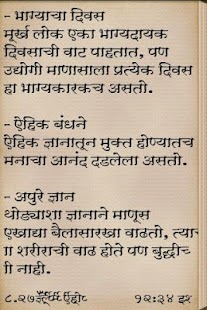 - भाग्याचा दिवस
मूर्ख लोक एका भाग्यदायक
दिवसाची वाट पाहतात, पण
उद्योगी माणासाला प्रत्येक दिवस
हा भाग्यकारकच असतो.
- ऐहिक बंधने
ऐहिक ज्ञानातून मुक्त होण्यातच
मनाचा आनंद दडलेला असतो.
- अपुरे ज्ञान
थोड्याशा ज्ञानाने माणूस
एखाद्या बैलासारखा वाढतो, त्याच
शरीराची वाढ होते पण बुद्धीची
नाही.
८.२७
१२:३४